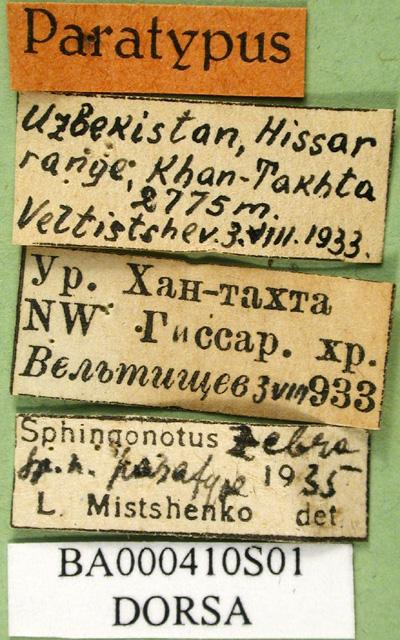 Paratypus
Uzbekistan, Hissar
range, Khan-Takhta
2775 m.
Veltistshev. 3.VIII.1933.
Ур. Хан-тахта
NW Гиссар. хр.
Вельтищев 3 VIII 933
Sphingonotus zebra
sp. n. paratype 1935
L. Mistshenko det.
BA000410S01
DORSA